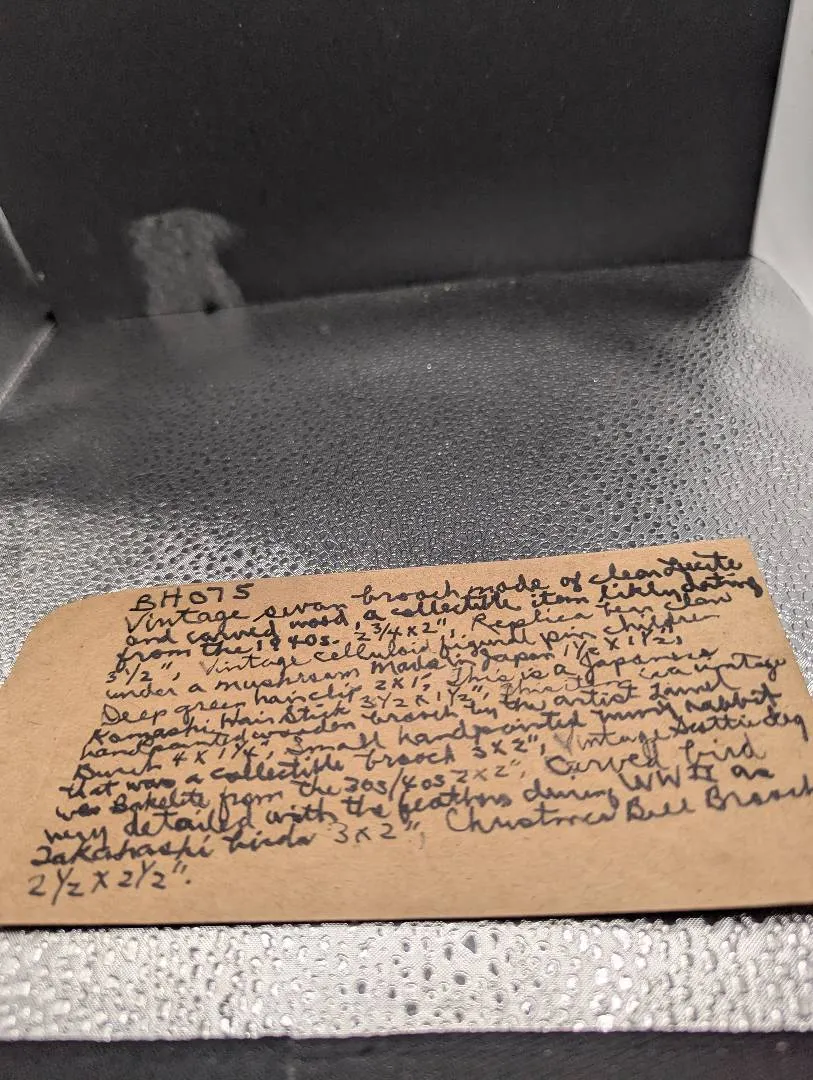 BH075
Vintage swan brooch made of clear Lucite
and carved wood, a collectible item likly dating
from the 1940s. 2 3/4 x 2", Replica bear claw
3 1/2", Vintage celluloid figural pin children
under a mushroom made in Japan 1 1/2 x 1 1/2",
Deep green hairclip 2x1", This is a Japanese
Hair Stick 3 1/2 x 1 1/2", This item is a vintage
handpainted wooden brooch by the artist
4 x 1 1/4", Small handpainted rabbit
that was a collectible brooch 3x2", Vintage Scottie dog
was Bakelite from the 30s/40s 2x2", Carved bird
very detailed with the feathers during WWII as
Takahashi birds 3x2", Christmas Bell Brooch
2 1/2 x 2 1/2".